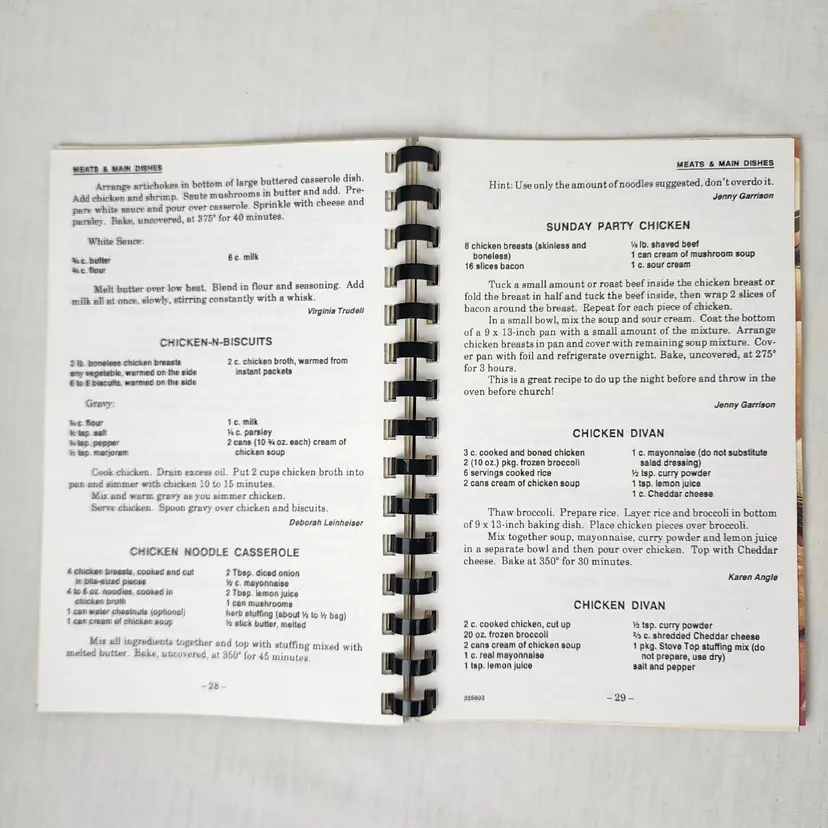 MEATS & MAIN DISHES
Arrange artichokes in bottom of large buttered casserole dish.
Add chicken and shrimp. Saute mushrooms in butter and add. Pre-
pare white sauce and pour over casserole. Sprinkle with cheese and
parsley. Bake, uncovered, at 375° for 40 minutes.
White Sauce:
¾ c. butter
¾ c. flour
6 c. milk
Melt butter over low heat. Blend in flour and seasoning. Add
milk all at once, slowly, stirring constantly with a whisk.
Virginia Trudell
CHICKEN-N-BISCUITS
3 lb. boneless chicken breasts
any vegetable, warmed on the side
6 to 8 biscuits, warmed on the side
2 c. chicken broth, warmed from
instant packets
Gravy:
c. flour
½ tsp. salt
tsp. pepper
½ tsp. marjoram
1 c. milk
¼ c. parsley
2 cans (10 ¾ oz. each) cream of
chicken soup
Cook chicken. Drain excess oil. Put 2 cups chicken broth into
pan and simmer with chicken 10 to 15 minutes.
Mix and warm gravy as you simmer chicken.
Serve chicken. Spoon gravy over chicken and biscuits.
Deborah Leinheiser
CHICKEN NOODLE CASSEROLE
4 chicken breasts, cooked and cut
in bite-sized pieces
4 to 6 oz. noodles, cooked in
chicken broth
1 can water chestnuts (optional)
1 can cream of chicken soup
2 Tbsp. diced onion
½ c. mayonnaise
2 Tbsp. lemon juice
1 can mushrooms
herb stuffing (about ⅓ to ½ bag)
½ stick butter, melted
Mix all ingredients together and top with stuffing mixed with
melted butter. Bake, uncovered, at 350° for 45 minutes.
-28-
MEATS & MAIN DISHES
Hint: Use only the amount of noodles suggested, don't overdo it.
Jenny Garrison
SUNDAY PARTY CHICKEN
8 chicken breasts (skinless and
boneless)
16 slices bacon
¼ lb. shaved beef
1 can cream of mushroom soup
1 c. sour cream
Tuck a small amount or roast beef inside the chicken breast or
fold the breast in half and tuck the beef inside, then wrap 2 slices of
bacon around the breast. Repeat for each piece of chicken.
In a small bowl, mix the soup and sour cream. Coat the bottom
of a 9 x 13-inch pan with a small amount of the mixture. Arrange
chicken breasts in pan and cover with remaining soup mixture. Cov-
er pan with foil and refrigerate overnight. Bake, uncovered, at 275°
for 3 hours.
This is a great recipe to do up the night before and throw in the
oven before church!
Jenny Garrison
CHICKEN DIVAN
3 c. cooked and boned chicken
2 (10 oz.) pkg. frozen broccoli
6 servings cooked rice
2 cans cream of chicken soup
1 c. mayonnaise (do not substitute
salad dressing)
½ tsp. curry powder
1 tsp. lemon juice
1 c. Cheddar cheese
Thaw broccoli. Prepare rice. Layer rice and broccoli in bottom
of 9 x 13-inch baking dish. Place chicken pieces over broccoli.
Mix together soup, mayonnaise, curry powder and lemon juice
in a separate bowl and then pour over chicken. Top with Cheddar
cheese. Bake at 350° for 30 minutes.
Karen Angle
CHICKEN DIVAN
2 c. cooked chicken, cut up
20 oz. frozen broccoli
2 cans cream of chicken soup
1 c. real mayonnaise
1 tsp. lemon juice
½ tsp. curry powder
⅔ c. shredded Cheddar cheese
1 pkg. Stove Top stuffing mix (do
not prepare, use dry)
salt and pepper
325693
-29-